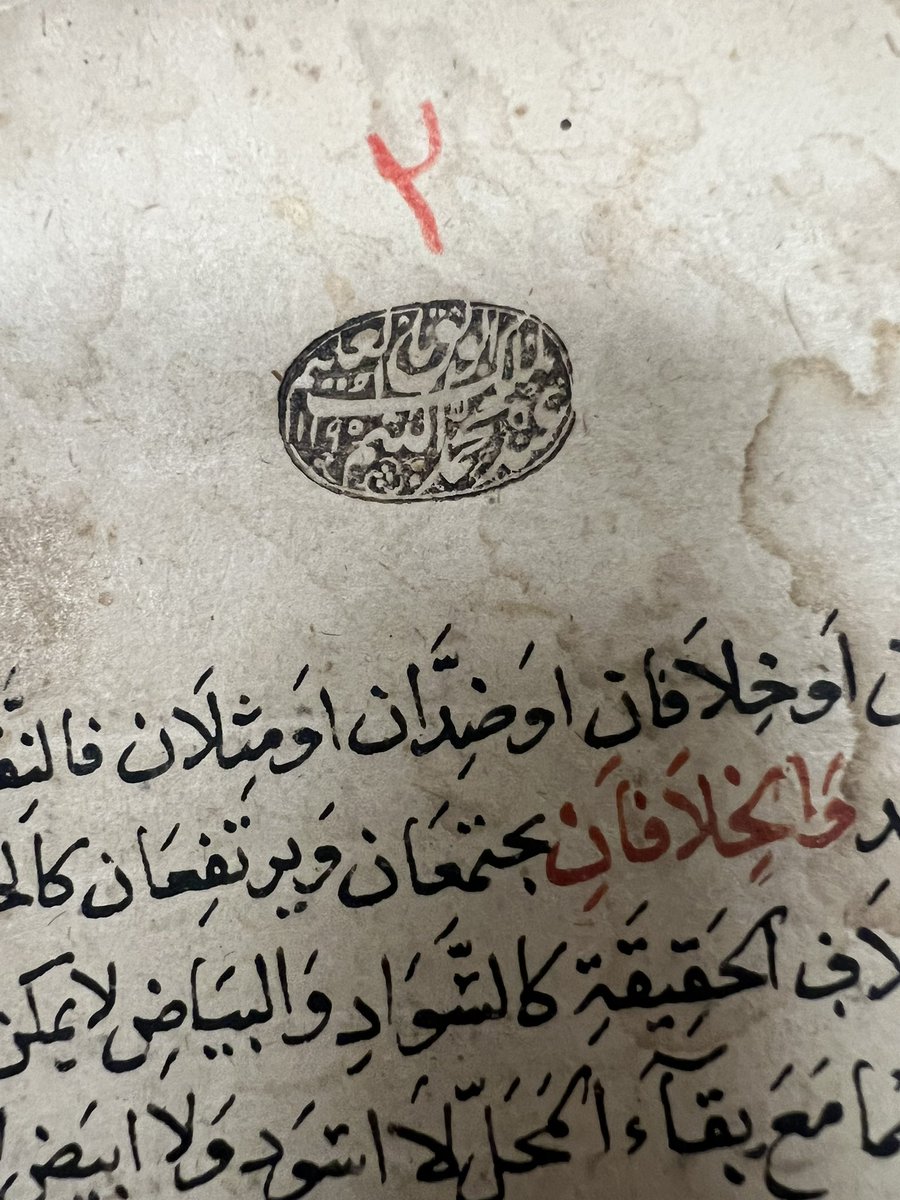 ٢
العليم
عبده محمد
١١٩٥
أَو خِلَافَان اوَ ضِدَّان اوَ مِثِلَان فالنق
وَالخِلَافَانِ يجتمَعَان وَيرتَفِعَان كالح
لَافِ الحَقِيقَةِ كالسَّوَادِ وَالبَيَاضِ لا يمكن
مَعَ بقآء المَحَلِّ لَا اسوَد وَلَا ابيَض